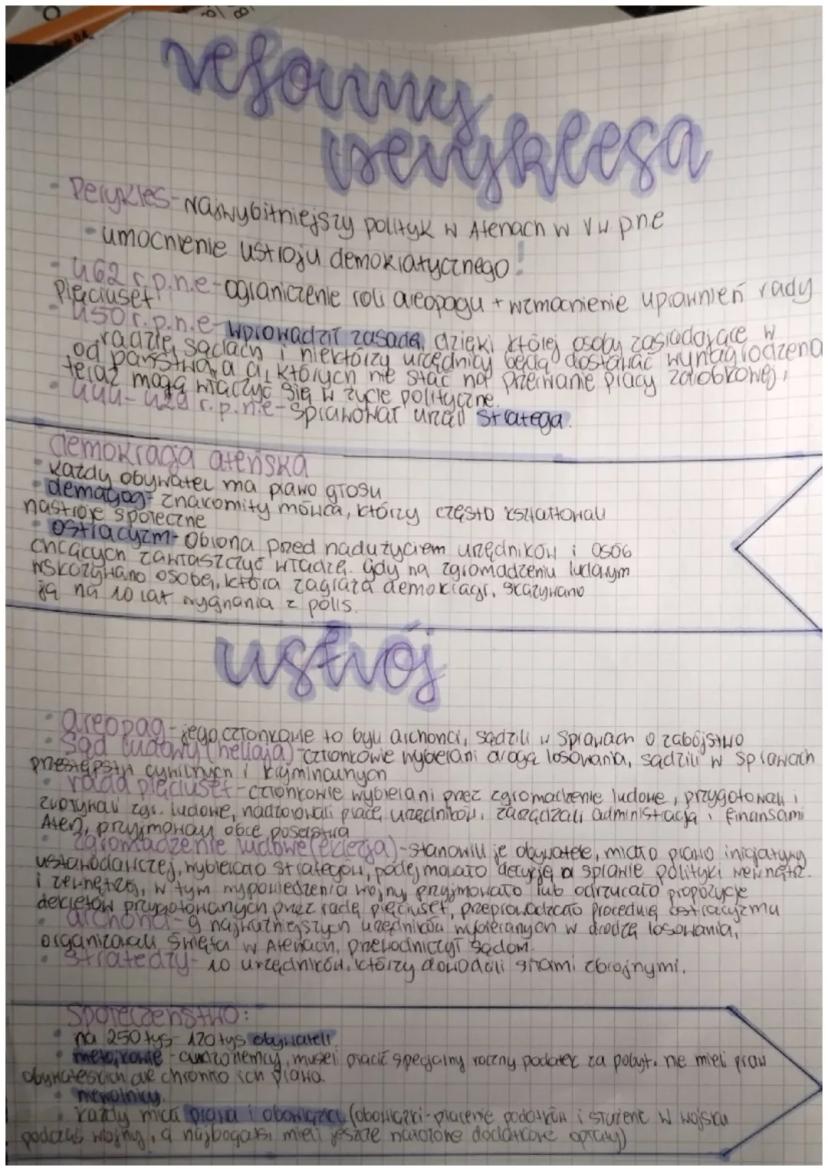 reformy
peryklesa
- Perykles - najwybitniejszy polityk w Atenach w V w pne
- umocnienie ustroju demokratycznego!
- 462 r.p.n.e - ograniczenie roli areopagu + wzmocnienie uprawnień rady
pięciuset
- 450 r.p.n.e - wprowadził zasadę, dzięki której osoby zasiadające w
radzie, sądach i niektórzy urzędnicy będą dostawać wynagrodzena
od państwa, a ci, których nie stać na przerwanie pracy zarobkowej,
teraz mogą włączyć się w życie polityczne.
- 444-429 r.p.n.e - sprawował urząd stratega.
demokracja ateńska
• każdy obywatel ma prawo głosu
• demagog - znakomity mówca, którzy często kształtowali
nastroje społeczne
• ostracyzm - obrona przed nadużyciem urzędników i osób
chcących zawłaszczyć władzę. gdy na zgromadzeniu ludowym
wskazywano osobę, która zagraża demokracji, skazywano
ją na 10 lat wygnania z polis.
ustrój
• areopag - jego członkowie to byli archonci, sądzili w sprawach o zabójstwo
• Sąd ludowy (heliaja) - członkowie wybierani drogą losowania, sądzili w sprawach
przestępstw cywilnych i kryminalnych
• rada pięciuset - członkowie wybierani przez zgromadzenie ludowe, przygotowali i
zwoływali zgr. ludowe, nadzorowali pracę urzędników, zarządzali administracją i finansami
Aten, przyjmowali obce poselstwa
• zgromadzenie ludowe (eklezja) - stanowili je obywatele, miało prawo inicjatywy
ustawodawczej, wybierało strategów, podejmowało decyzję w sprawie polityki wewnętrz.
i zewnętrzej, w tym wypowiedzenia wojny, przyjmowało lub odrzucało propozycje
dekretów przygotowanych przez radę pięciuset, przeprowadzało procedurę ostracyzmu
• archonci - 9 najważniejszych urzędników wybieranych w drodze losowania,
organizowali święta w Atenach, przewodniczyli sądom.
• stratedzy - 10 urzędników, którzy dowodzili siłami zbrojnymi.
Społeczeństwo:
• na 250 tys - 120 tys obywateli
• metojkowie - cudzoziemcy, musieli płacić specjalny roczny podatek za pobyt. nie mieli praw
obywatelskich ale chroniło ich prawo.
• niewolnicy.
• każdy miał prawa i obowiązki (obowiązki - płacenie podatków i służenie w wojsku
podczas wojny, a najbogatsi mieli jeszcze nałożone dodatkowe opłaty)